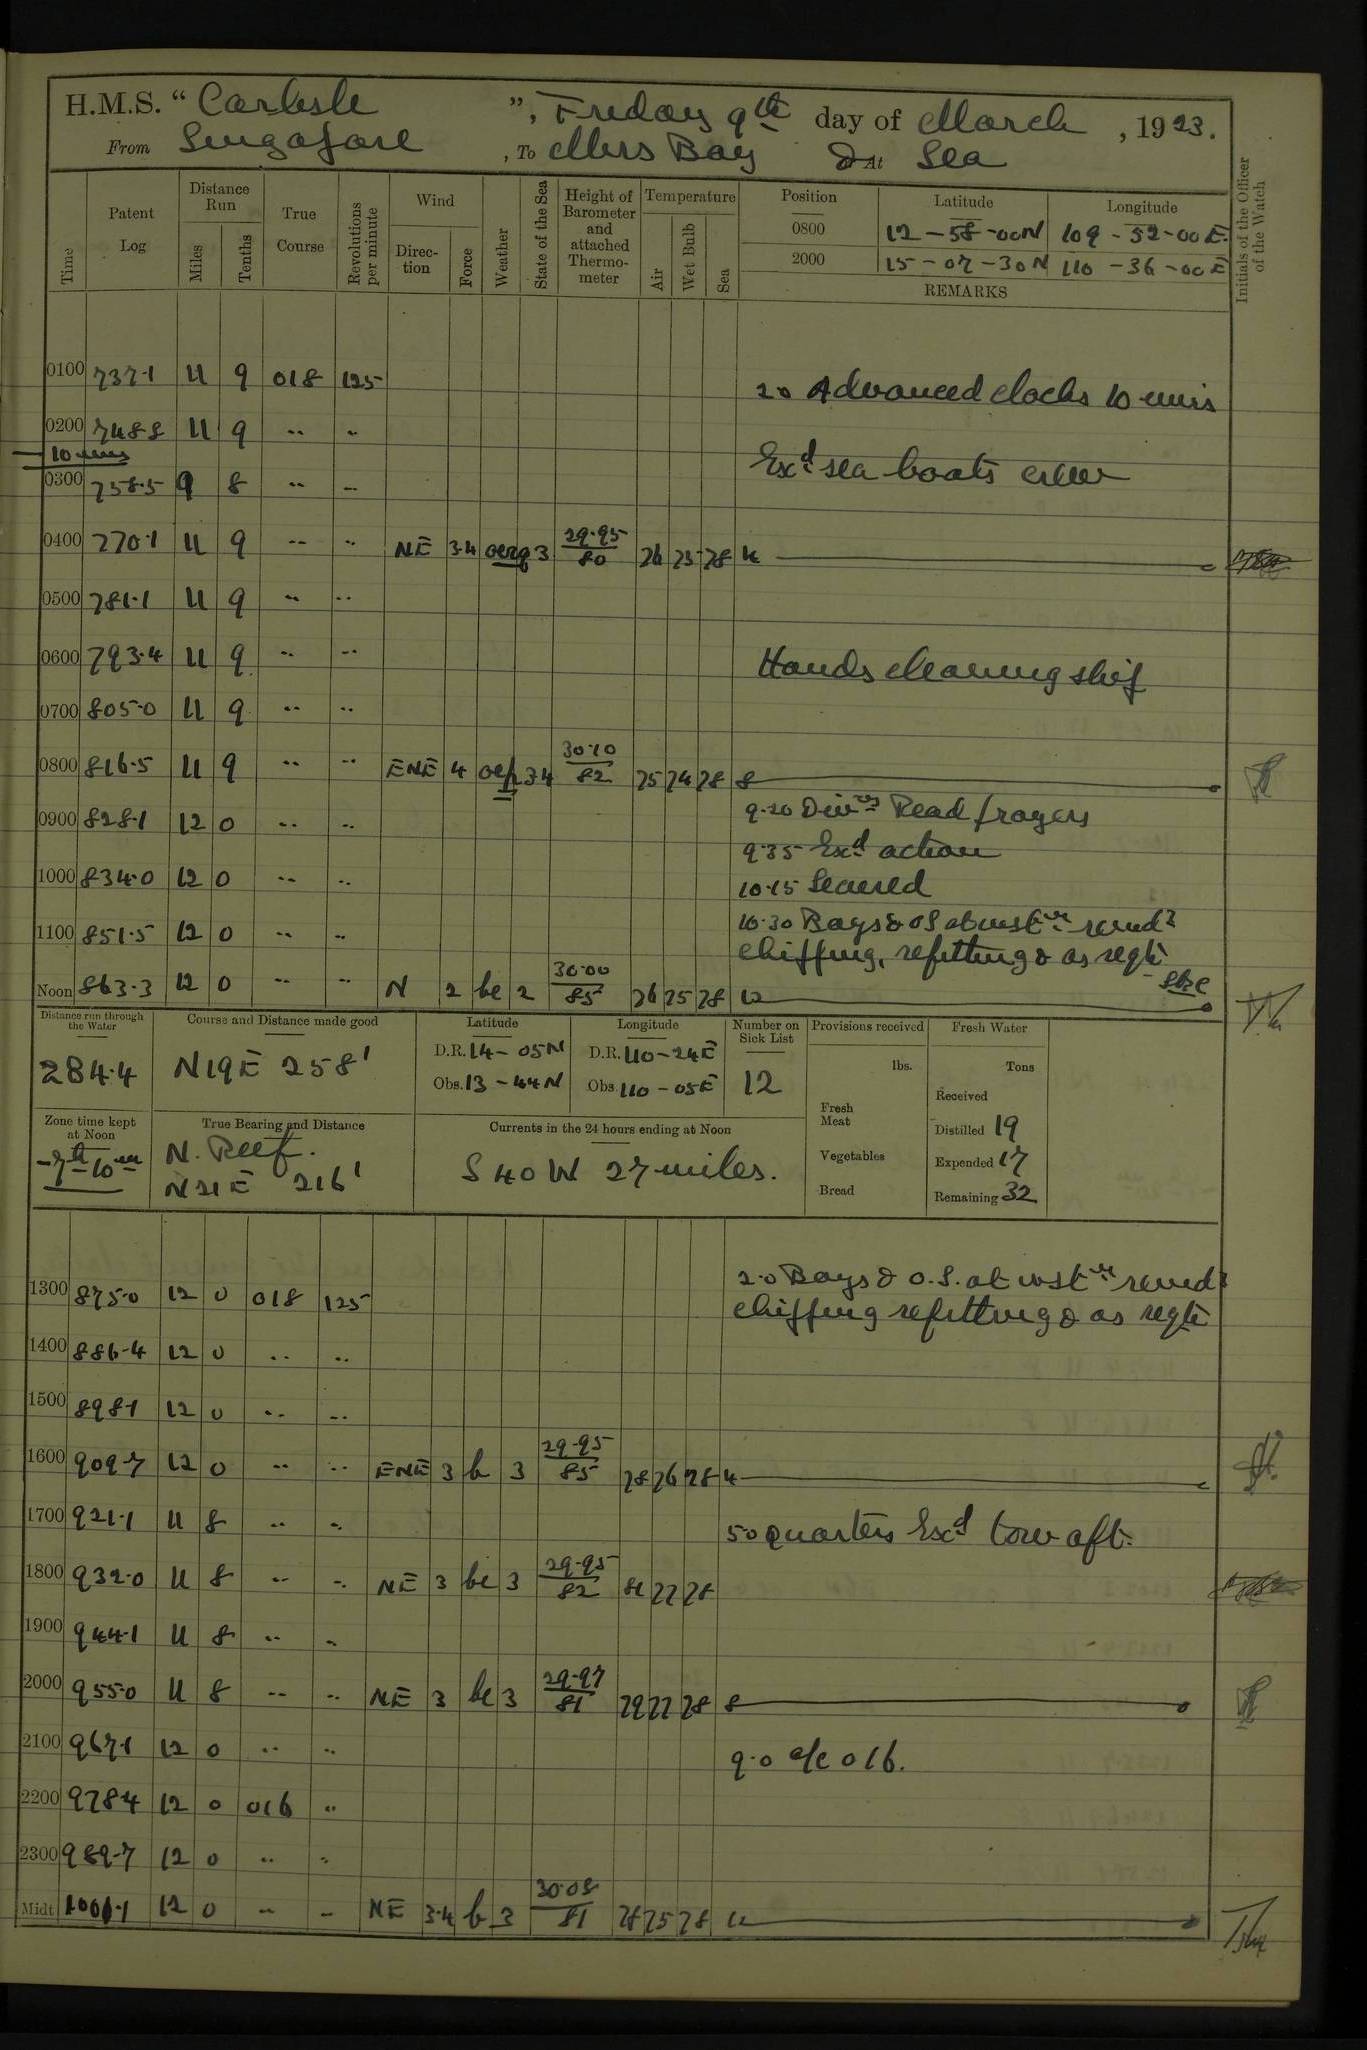 H.M.S. "Carlisle", Friday 9th day of March, 1923.
From Singapore, To Mirs Bay Or At Sea
Time
Patent Log
Distance Run
Miles
Tenths
True Course
Revolutions per minute
Wind
Direction
Force
Weather
State of the Sea
Height of Barometer and attached Thermometer
Temperature
Air
Wet Bulb
Sea
Position
Latitude
Longitude
0800 12-58-00N 109-52-00E.
2000 15-07-30N 110-36-00E
REMARKS
Initials of the Officer of the Watch
0100 737.1 11 9 018 125
2.0 Advanced clocks 10 mins
0200 748.8 11 9 .. ..
- 10 mins
Exd sea boats crew
0300 758.5 9 8 .. ..
0400 770.1 11 9 .. .. NE 3.4 3 29.95 80 76 75 78 4
0500 781.1 11 9 .. ..
0600 793.4 11 9 .. ..
Hands cleaning ship
0700 805.0 11 9 .. ..
0800 816.5 11 9 .. .. ENE 4 3.4 30.10 82 75 74 78 8
0900 828.1 12 0 .. ..
9.20 Divns Read prayers
9.35 Exd action
1000 834.0 12 0 .. ..
10.15 Secured
10.30 Boys & OS at instrn remdr
1100 851.5 12 0 .. ..
chipping, refitting & as reqte
Noon 863.3 12 0 .. .. N 2 bc 2 30.00 85 76 75 78 12
Distance run through the Water
284.4
Course and Distance made good
N19E 258'
Latitude
D.R. 14-05N
Obs. 13-44N
Longitude
D.R. 110-24E
Obs. 110-05E
Number on Sick List
12
Provisions received
lbs.
Fresh Meat
Vegetables
Bread
Fresh Water
Tons
Received
Distilled 19
Expended 17
Remaining 32
Zone time kept at Noon
-7h 10m
True Bearing and Distance
N. Reef.
N21E 216'
Currents in the 24 hours ending at Noon
S 40 W 27 miles.
2.0 Boys & O.S. at instrn remdr
1300 875.0 12 0 018 125
chipping refitting & as reqte
1400 886.4 12 0 .. ..
1500 898.1 12 0 .. ..
1600 909.7 12 0 .. .. ENE 3 b 3 29.95 85 78 76 78 4
1700 921.1 11 8 .. ..
5.0 quarters Exd tow aft.
1800 932.0 11 8 .. .. NE 3 bc 3 29.95 82 81 77 78
1900 944.1 11 8 .. ..
2000 955.0 11 8 .. .. NE 3 bc 3 29.97 81 79 77 78 8
2100 967.1 12 0 .. ..
9.0 a/c 016.
2200 978.4 12 0 016 ..
2300 989.7 12 0 .. ..
Midt 1001.1 12 0 .. .. NE 3.4 b 3 30.05 81 78 75 78 12